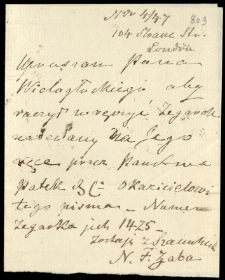 Nov 4/47
803
104 Sloane Str.
London
Upraszam Pana
Wielogłockiego aby
raczył wręczyć Zegarek
nadesłany dla jego
ręce przez Państwa
Patek & C: okazicielowi
tego pisma – Numer
Zegarka jest 1425
Zostaję z szacunkiem
N. F. Zaba